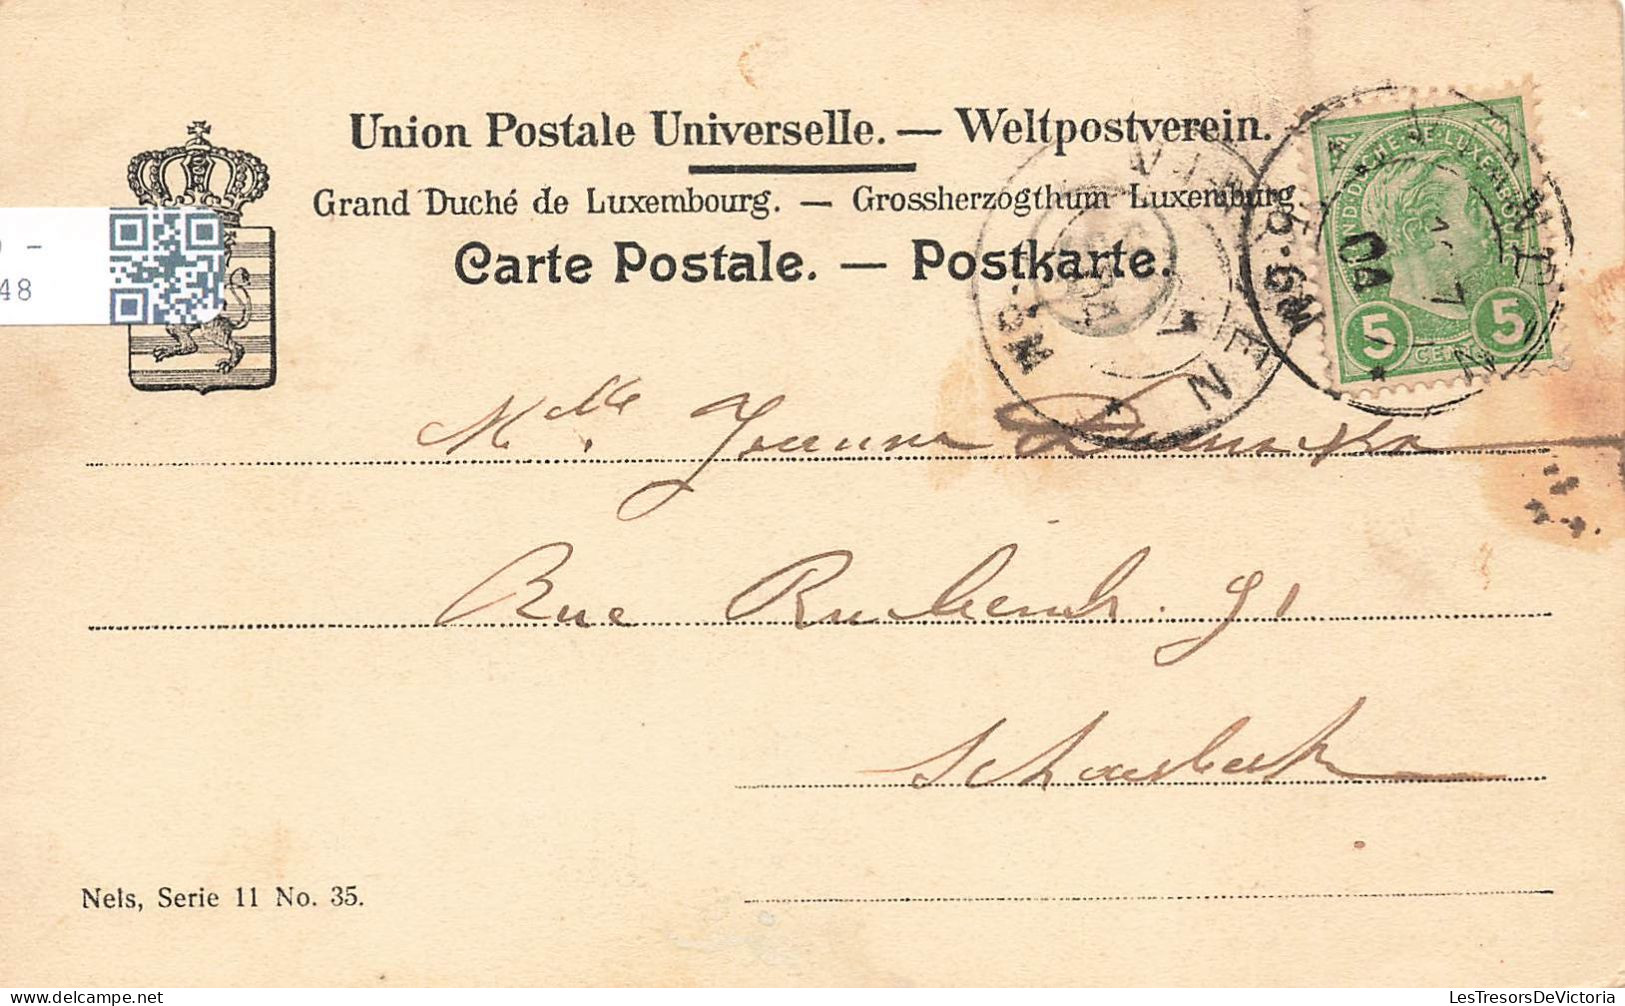 Union Postale Universelle. — Weltpostverein.
Grand Duché de Luxembourg. — Grossherzogthum Luxemburg.
Carte Postale. — Postkarte.
GRAND-DUCHÉ-DE-LUXEMBOURG
5 CENT. 5
VIANDEN
VIANDEN
48
Mlle. Jeanne
Rue Rubens. 91
Schaerbeek
Nels, Serie 11 No. 35.
LesTresorsDeVictoria